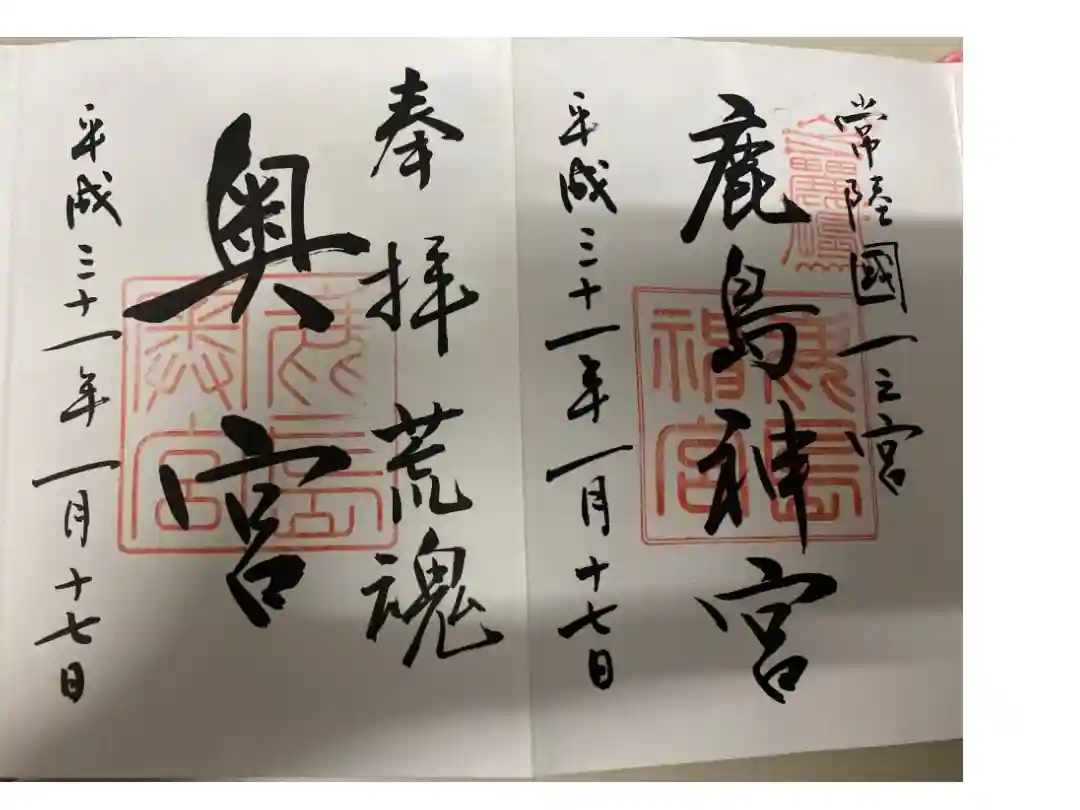 常陸國一之宮
鹿島神宮
平成三十一年一月十七日
奉拝荒魂
奥宮
平成三十一年一月十七日
鹿島
神宮
鹿島
奥宮